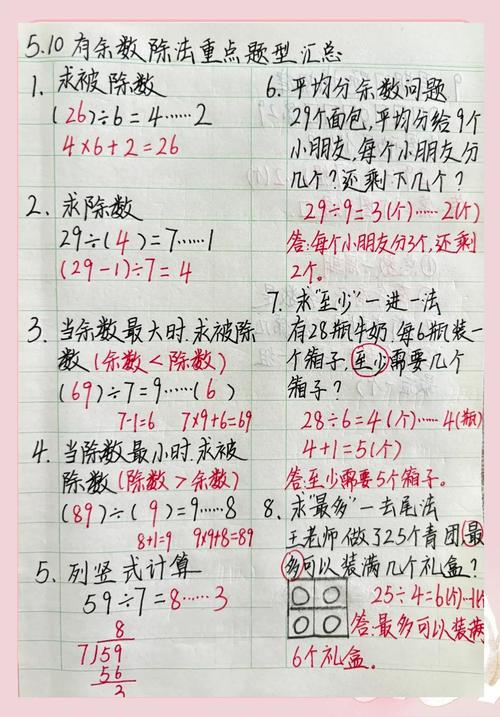 5.10 有余数除法重点题型汇总
1. 求被除数
(26)÷6=4……2
4×6+2=26
2. 求除数
29÷(4)=7……1
(29-1)÷7=4
3. 当余数最大时,求被除
数(余数<除数)
(69)÷7=9……(6)
7-1=6 7×9+6=69
4. 当除数最小时,求被
除数(除数>余数)
(89)÷(9)=9……8
8+1=9 9×9+8=89
5. 列竖式计算
59÷7=8……3
8
7)59
56
3
6. 平均分余数问题
29个面包,平均分给9个
小朋友,每个小朋友分
几个?还剩下几个?
29÷9=3(个)……2(个)
答:每个小朋友分3个,还剩
2个。
7. 求"至少"一进一法
有28瓶牛奶,每6瓶装一
个箱子,至少需要几个
箱子?
28÷6=4(个)……4(瓶)
4+1=5(个)
答:至少需要5个箱子。
8. 求"最多"一去尾法
王老师做了25个青团,最
多可以装满几个礼盒?
25÷4=6(个)…1(
答:最多可以装满
6个礼盒.